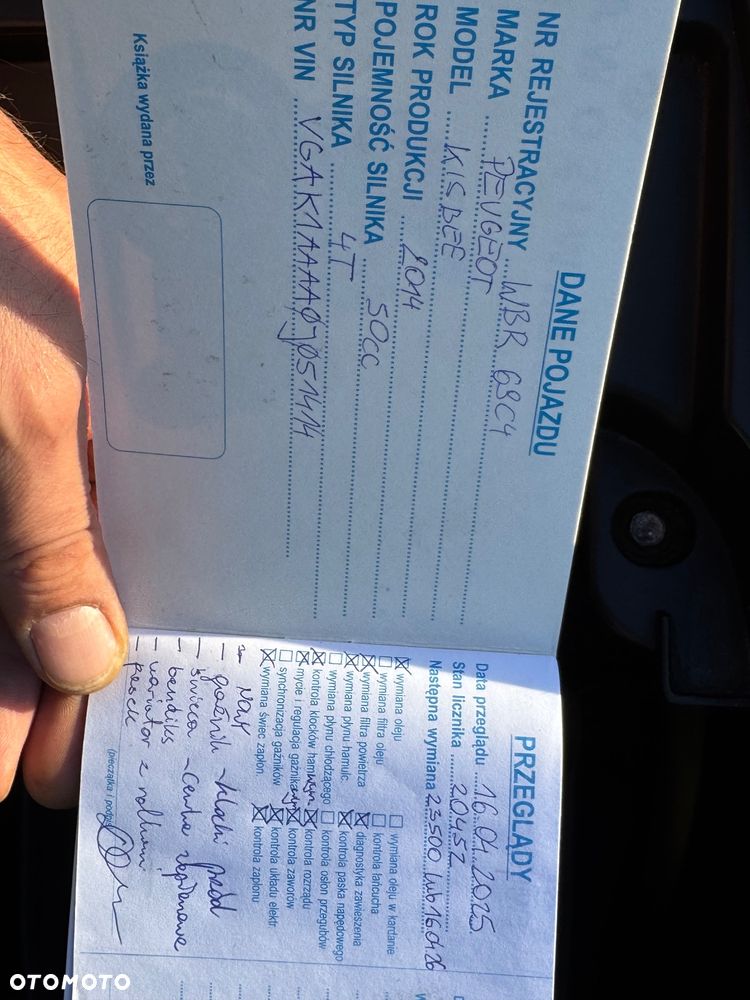 DANE POJAZDU
NR REJESTRACYJNY WBR 69C4
MARKA PEUGEOT
MODEL KISBEE
ROK PRODUKCJI 2014
POJEMNOŚĆ SILNIKA 50cc
TYP SILNIKA 4T
NR VIN
Książka wydana przez
PRZEGLĄDY
Data przeglądu 16.04.2025
Stan licznika 20457
Następna wymiana 23500 lub 16.04.26
☒ wymiana oleju
☐ wymiana filtra oleju
☒ wymiana filtra powietrza
☒ wymiana płynu hamulc.
☐ wymiana płynu chłodzącego
☒ kontrola klocków ham
☒ mycie i regulacja gaźnika
☐ synchronizacja gaźników
☒ wymiana świec zapłon.
☐ wymiana oleju w kardanie
☐ kontrola łańcucha
☒ diagnostyka zawieszenia
☒ kontrola paska napędowego
☐ kontrola osłon przegubów
☒ kontrola rozrządu
☒ kontrola zaworów
☒ kontrola układu elektr
☒ kontrola zapłonu
- gaźnik
- świeca
- bendiks
- wariator z rolkami
- pasek
(pieczątka i podpis
OTOMOTO